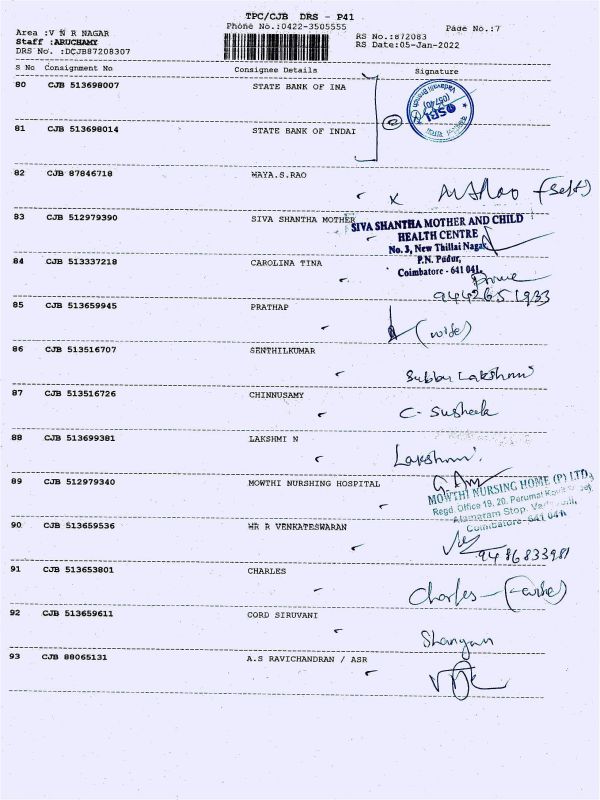 TPC/CJB DRS - P41
Phone No.:0422-3505555
Page No.:7
Area :V N R NAGAR
Staff :ARUCHAMY
DRS No. :DCJB87208307
RS No.:872083
RS Date:05-Jan-2022
S No Consignment No Consignee Details Signature
80 CJB 513698007 STATE BANK OF INA
SBI
81 CJB 513698014 STATE BANK OF INDAI
82 CJB 87846718 WAYA.S.RAO
x (self)
83 CJB 512979390 SIVA SHANTHA MOTHER
SIVA SHANTHA MOTHER AND CHILD
HEALTH CENTRE
No. 3, New Thillai Nagar
P.N. Pudur,
Coimbatore - 641 041.
84 CJB 513337218 CAROLINA TINA
9442651933
85 CJB 513659945 PRATHAP
(wife)
86 CJB 513516707 SENTHILKUMAR
Subbu Lakshmi
87 CJB 513516726 CHINNUSAMY
C. Susheela
88 CJB 513699381 LAKSHMI N
Lakshmi
89 CJB 512979340 MOWTHI NURSHING HOSPITAL
MOWTHI NURSING HOME (P) LTD
Regd. Office 19, 20, Perumal
Alamaram Stop,
Coimbatore - 641 041
90 CJB 513659536 WR R VENKATESWARAN
9486833981
91 CJB 513653801 CHARLES
Charles
92 CJB 513659611 CORD SIRUVANI
93 CJB 88065131 A.S RAVICHANDRAN / ASR